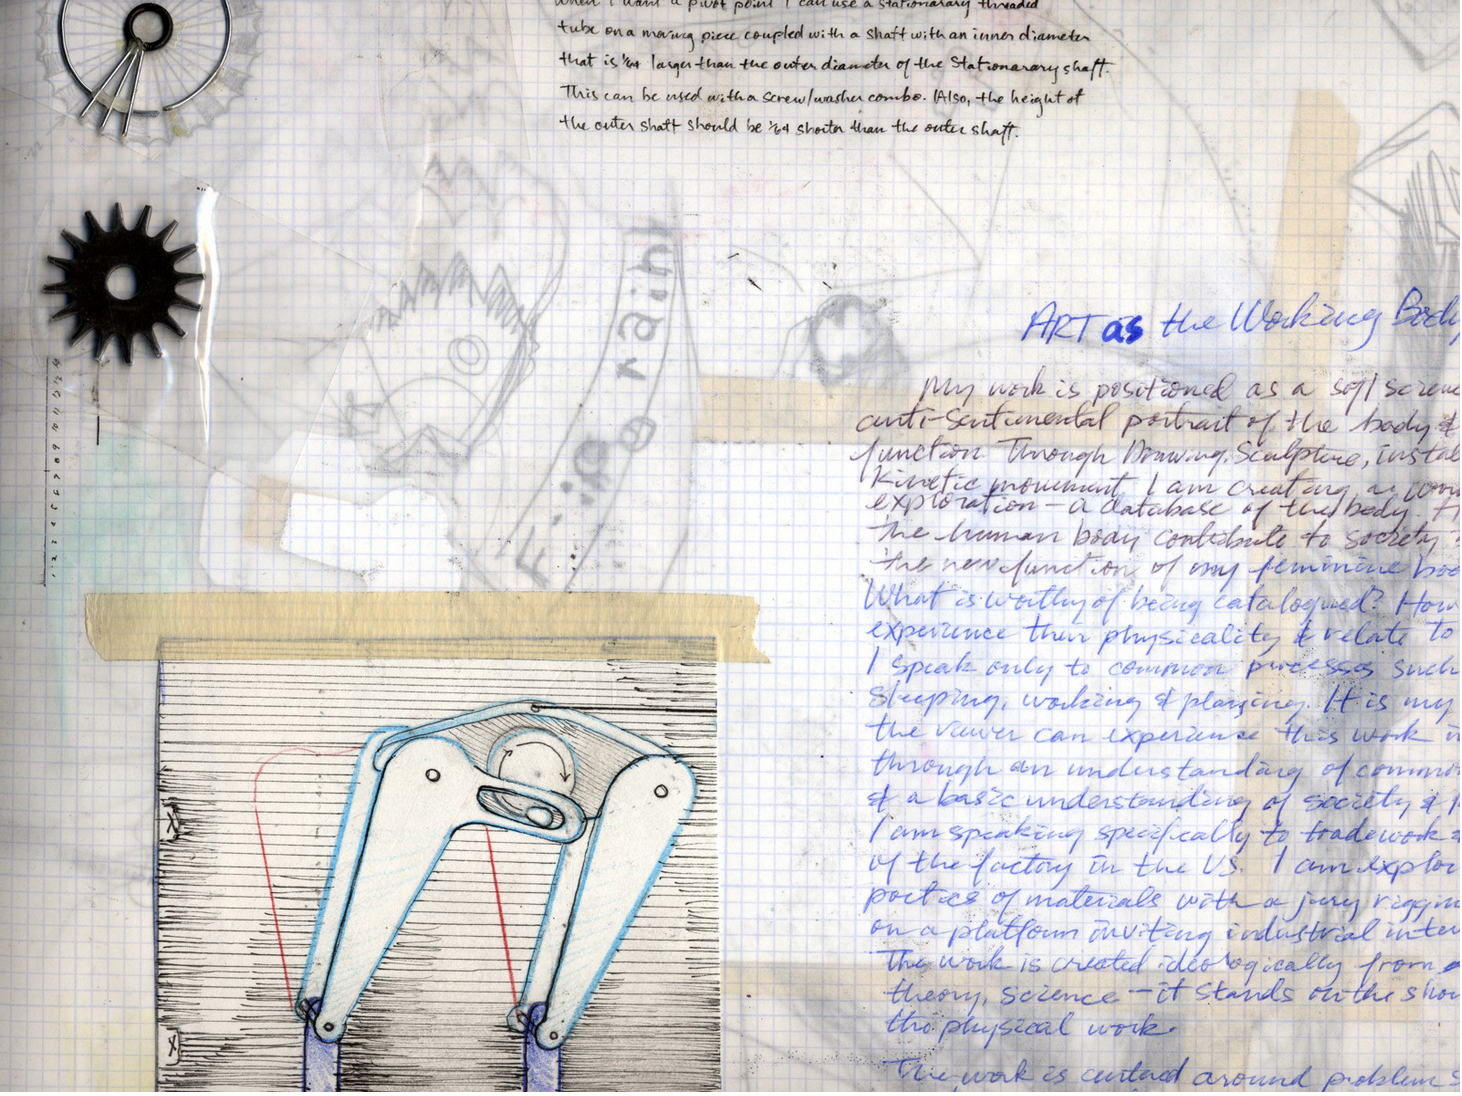 When I want a pivot point I can use a stationarary threaded
tube on a moving piece coupled with a shaft with an inner diameter
that is 1/64 larger than the outer diameter of the Stationarary shaft.
This can be used with a screw/washer combo. (Also, the height of
the outer shaft should be 1/64 shorter than the outer shaft.
rain
ART as the Working Body
My work is positioned as a soft
anti-sentimental portrait of the body &
function Through Drawing, Sculpture,
Kinetic movement I am creating a
exploration – a database of the body.
the human body contribute to society
the new function of my feminine
What is worthy of being catalogued? How
experience their physicality & relate to
I speak only to common processes such
sleeping, working & playing. It is my
the viewer can experience this work
through an understanding of
& a basic understanding of society &
I am speaking specifically to tradework
of the factory in the US. I am
poetics of materials with a jury
on a platform inviting industrial
The work is created ideologically from
theory, science – it stands on the
the physical work.
The work is centered around problem